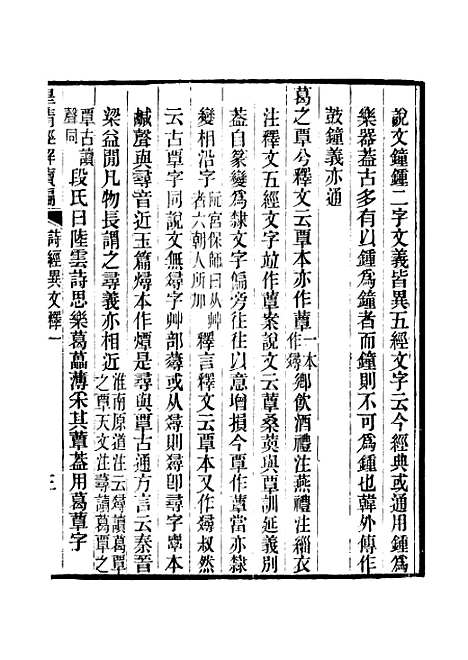 說文鐘鍾二字文義皆異五經文字云今經典或通用鍾爲
樂器蓋古多有以鍾爲鐘者而鐘則不可爲鍾也韓外傳作
鼓鐘義亦通
葛之覃今釋文云覃本亦作蕈一本作㝷鄉飲酒禮注燕禮注緇衣
注釋文五經文字竝作蕈案說文云蕈桑䓴與覃訓延義別
蓋自篆變爲隸文字偏旁往往以意增損今覃作蕈當亦隸
變相沿字阮宮保師曰从艸者六朝人所加釋言釋文云覃本又作㝷叔然
云古覃字同說文無㝷字艸部蕁或从㝷則㝷卽㝷字覃本
鹹聲與尋音近玉篇燖本作燂是尋與覃古通方言云秦晉
梁益閒凡物長謂之尋義亦相近淮南原道注云㝷讀葛覃之覃天文注蕁讀葛覃之
覃古讀聲同段氏曰陸雲詩思樂葛藟薄采其蕈蓋用葛蕈字
皇淸經解續編
詩經異文釋一
三